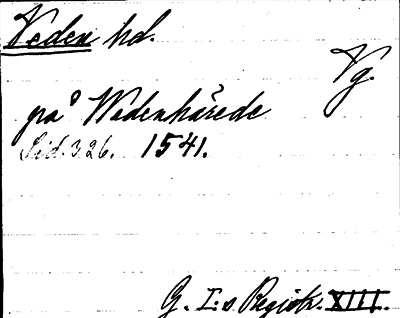 Veden hd.
Vg.
på Wedenhärede
Sid. 326. 1541.
G. I:s Registr. XIII.